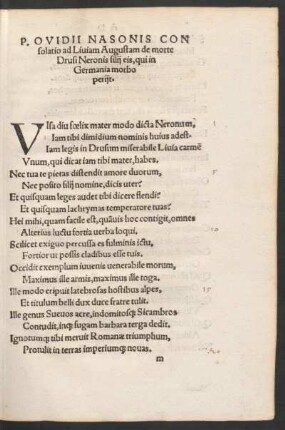 P. OVIDII NASONIS CON
solatio ad Liuiam Augustam de morte
Drusi Neronis filij eis, qui in
Germania morbo
perijt.
VIsa diu fœlix mater modo dicta Neronum,
Iam tibi dimidium nominis huius adest.
Iam legis in Drusum miserabile Liuia carmē
Vnum, qui dicat iam tibi mater, habes.
Nec tua te pietas distendit amore duorum,
Nec posito filij nomine, dicis uter?
Et quisquam leges audet tibi dicere flendi?
Et quisquam lachrymas temperat ore tuas?
Hei mihi, quam facile est, quāuis hoc contigit, omnes
Alterius luctu fortia uerba loqui,
Scilicet exiguo percussa es fulminis ictu,
Fortior ut possis cladibus esse tuis.
Occidit exemplum iuuenis uenerabile morum,
Maximus ille armis, maximus ille toga.
Ille modo eripuit latebrosas hostibus alpes,
Et titulum belli dux duce fratre tulit.
Ille genus Sueuos acre, indomitosq; Sicambros
Contudit, inq; fugam barbara terga dedit.
Ignotumq; tibi meruit Romane triumphum,
Protulit in terras imperiumq; nouas.
m